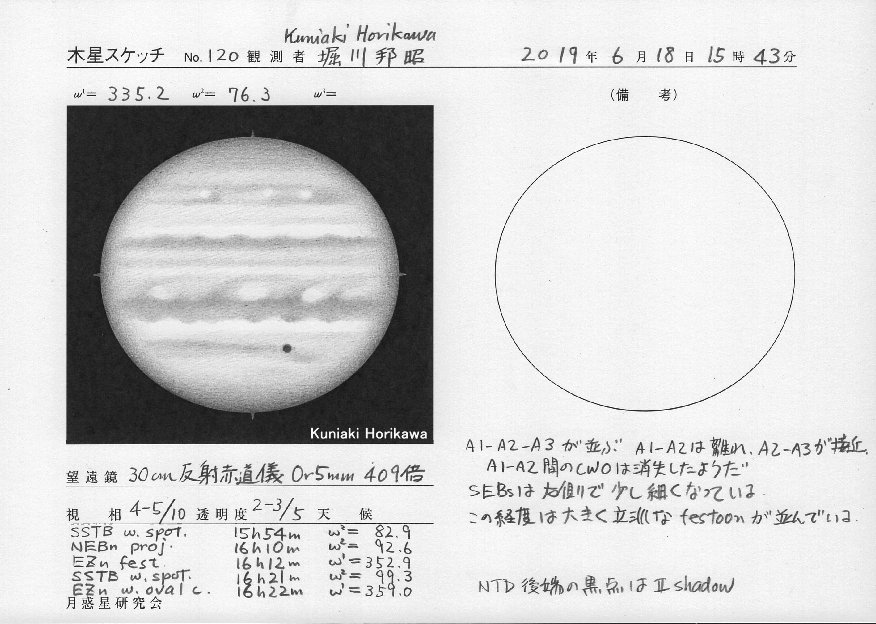 Kuniaki Horikawa
木星スケッチ No.120 観測者 堀川邦昭 2019年6月18日15時43分
ω¹= 335.2 ω²= 76.3 ω³=
(備 考)
Kuniaki Horikawa
A1-A2-A3が並ぶ A1-A2は離れ、A2-A3が接近。
A1-A2間のCWOは消失したようだ
望遠鏡 30cm反射赤道儀 Or5mm 409倍
SEBsは右側で少し細くなっている。
視相 4-5/10 透明度 2-3/5 天候
この経度は大きく立派なfestoonが並んでいる.
SSTB w.spot. 15h54m ω²= 82.9
NEBn proj. 16h10m ω²= 92.6
EZn fest 16h12m ω¹=352.9
SSTB w.spot. 16h21m ω²= 99.3
EZn w.oval c. 16h22m ω¹=359.0
NTD後端の黒点はII shadow
月惑星研究会